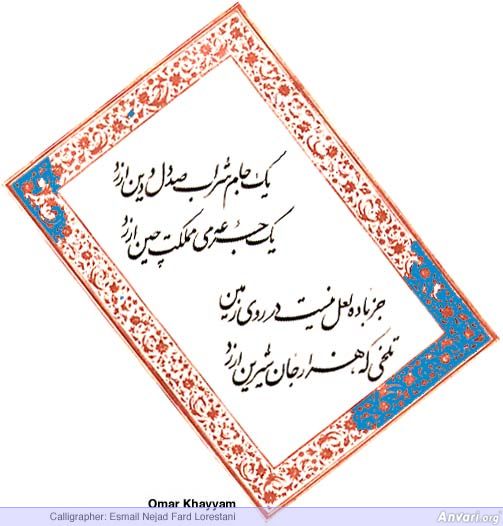 یک جام شراب صد دل و دین ارزد
یک جرعه می مملکت چین ارزد
جز باده لعل نیست در روی زمین
تلخی که هزار جان شیرین ارزد
Omar Khayyam
Calligrapher: Esmail Nejad Fard Lorestani
Anvari.org